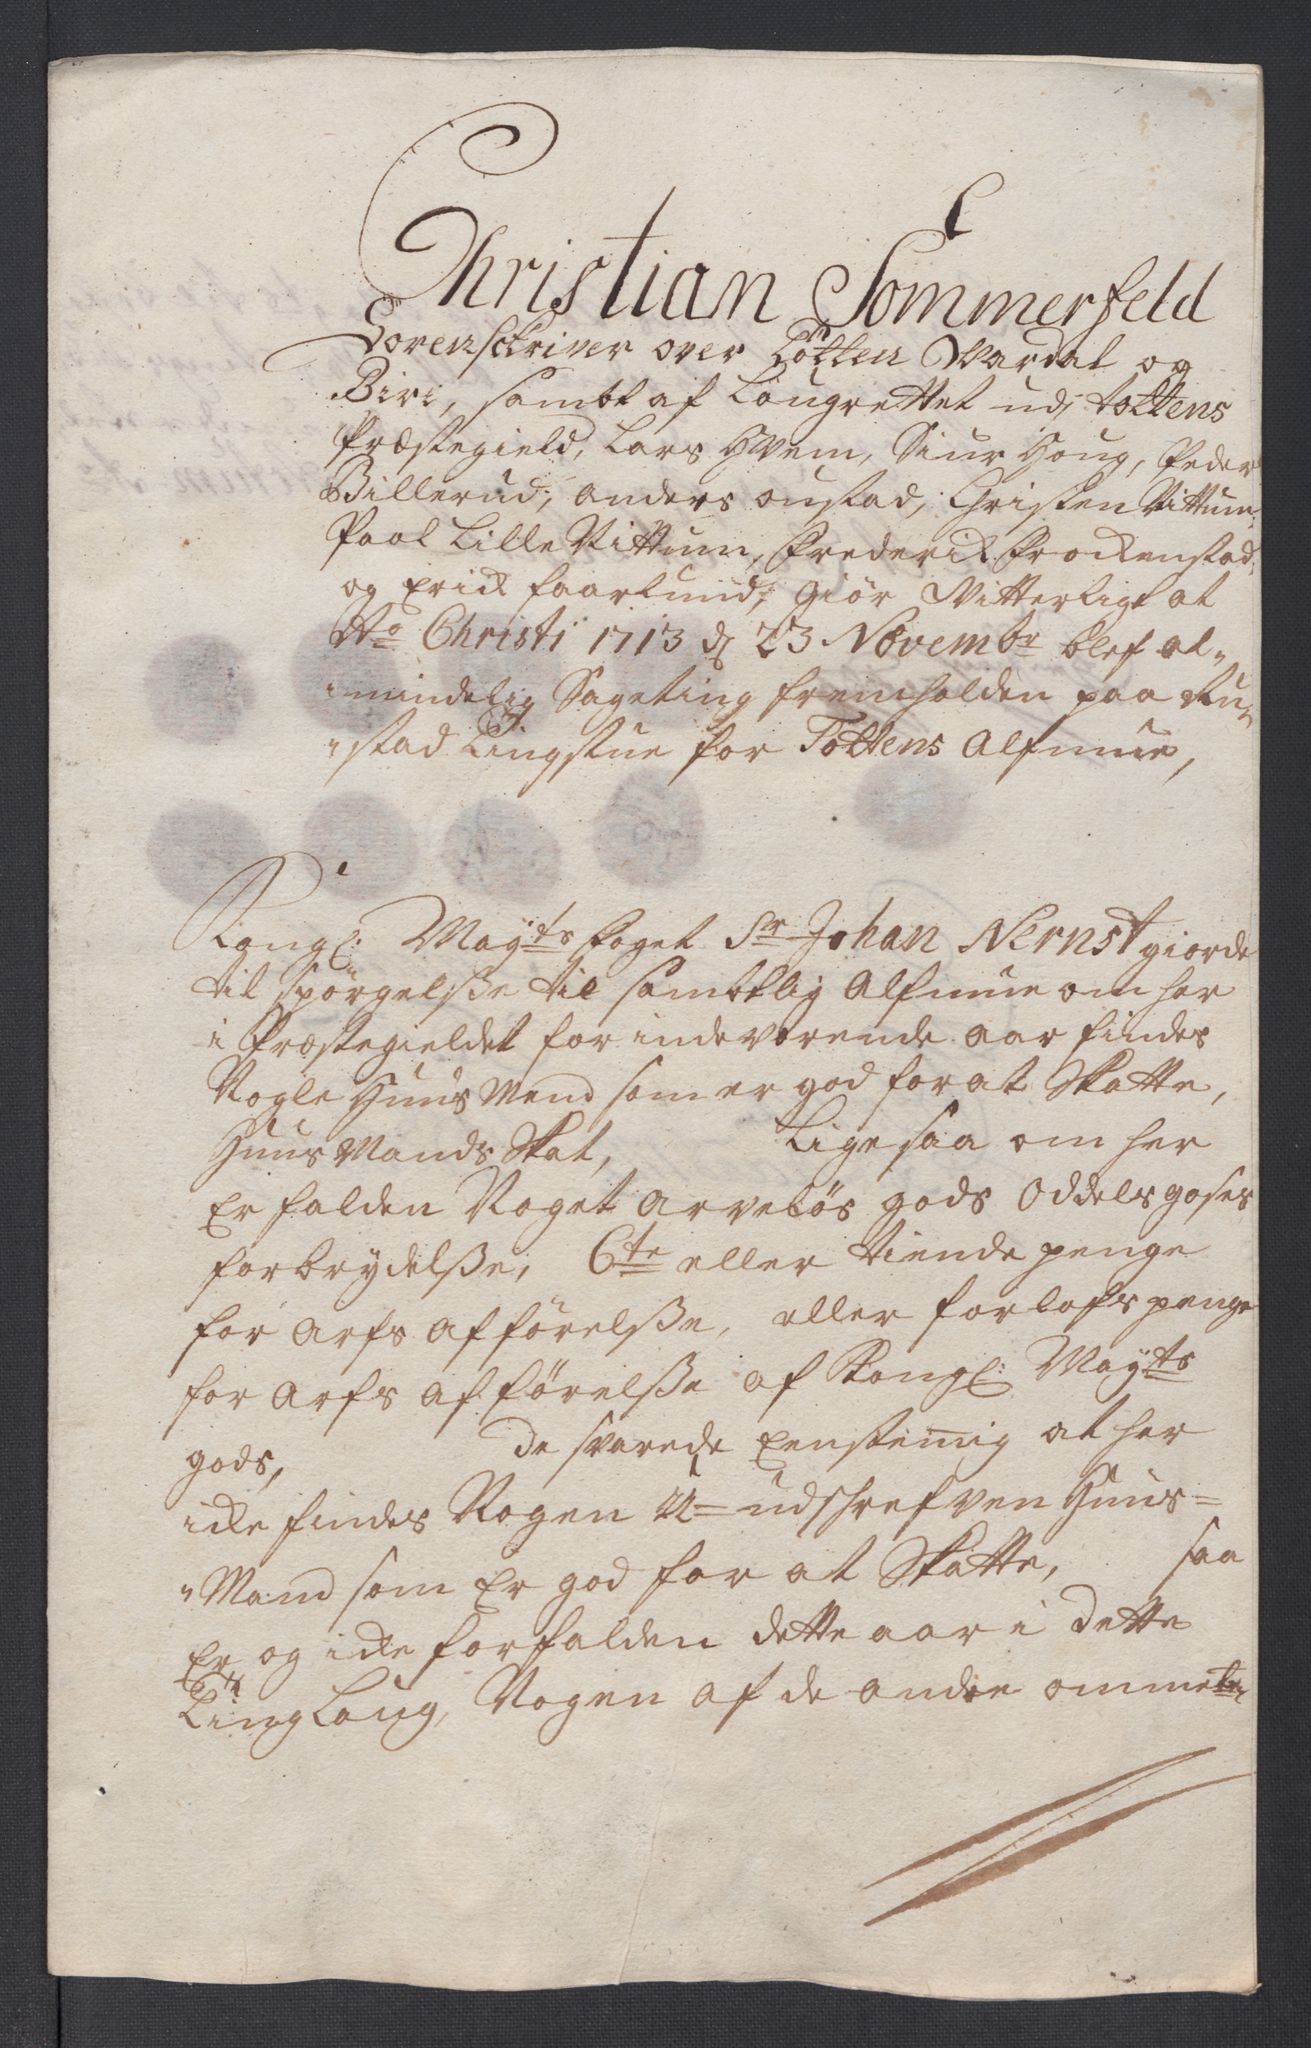 Christian Sommerfeld
Sorenschriver over Totten Wardal og
Biri, sambt af Laugrettet udj tottens
Præstegield, Lars Hvem, Siur Houg, Peder
Billerud, Anders oustad, Christen Vittum,
Povl Lille Vittum, Frederik Frockenstad,
og Erick Faarlund, Giör Witterligt at
Ao Christi 1713 dj 23 Novembr blef al„
„mindelig Sageting fremholden paa
„stad Tingstue for Tottens Almue,
Kongl: Mayts foget Sr Johan Nernst giorde
til spörgelsße til sambtlig Almue om her
i Præstegieldet for indeværende aar findes
Nogle Huus Mend som er god for at Skatte,
Huus Mands Skat, Lige saa om her
Er falden Noget arvelös gods Oddels goses
forbrydelße, 6te eller tiende penge
for arfs afförelße, eller forlofs penge
for arfs afförelße af Kongl: Mayts
gods, De svarede Eenstemig at her
icke findes Nogen U= udschrefven Huus=
„Mand som Er god for at Skatte, saa
Er og icke forfalden dette aar i dette
Ting Laug, Nogen af de andre ommelte„